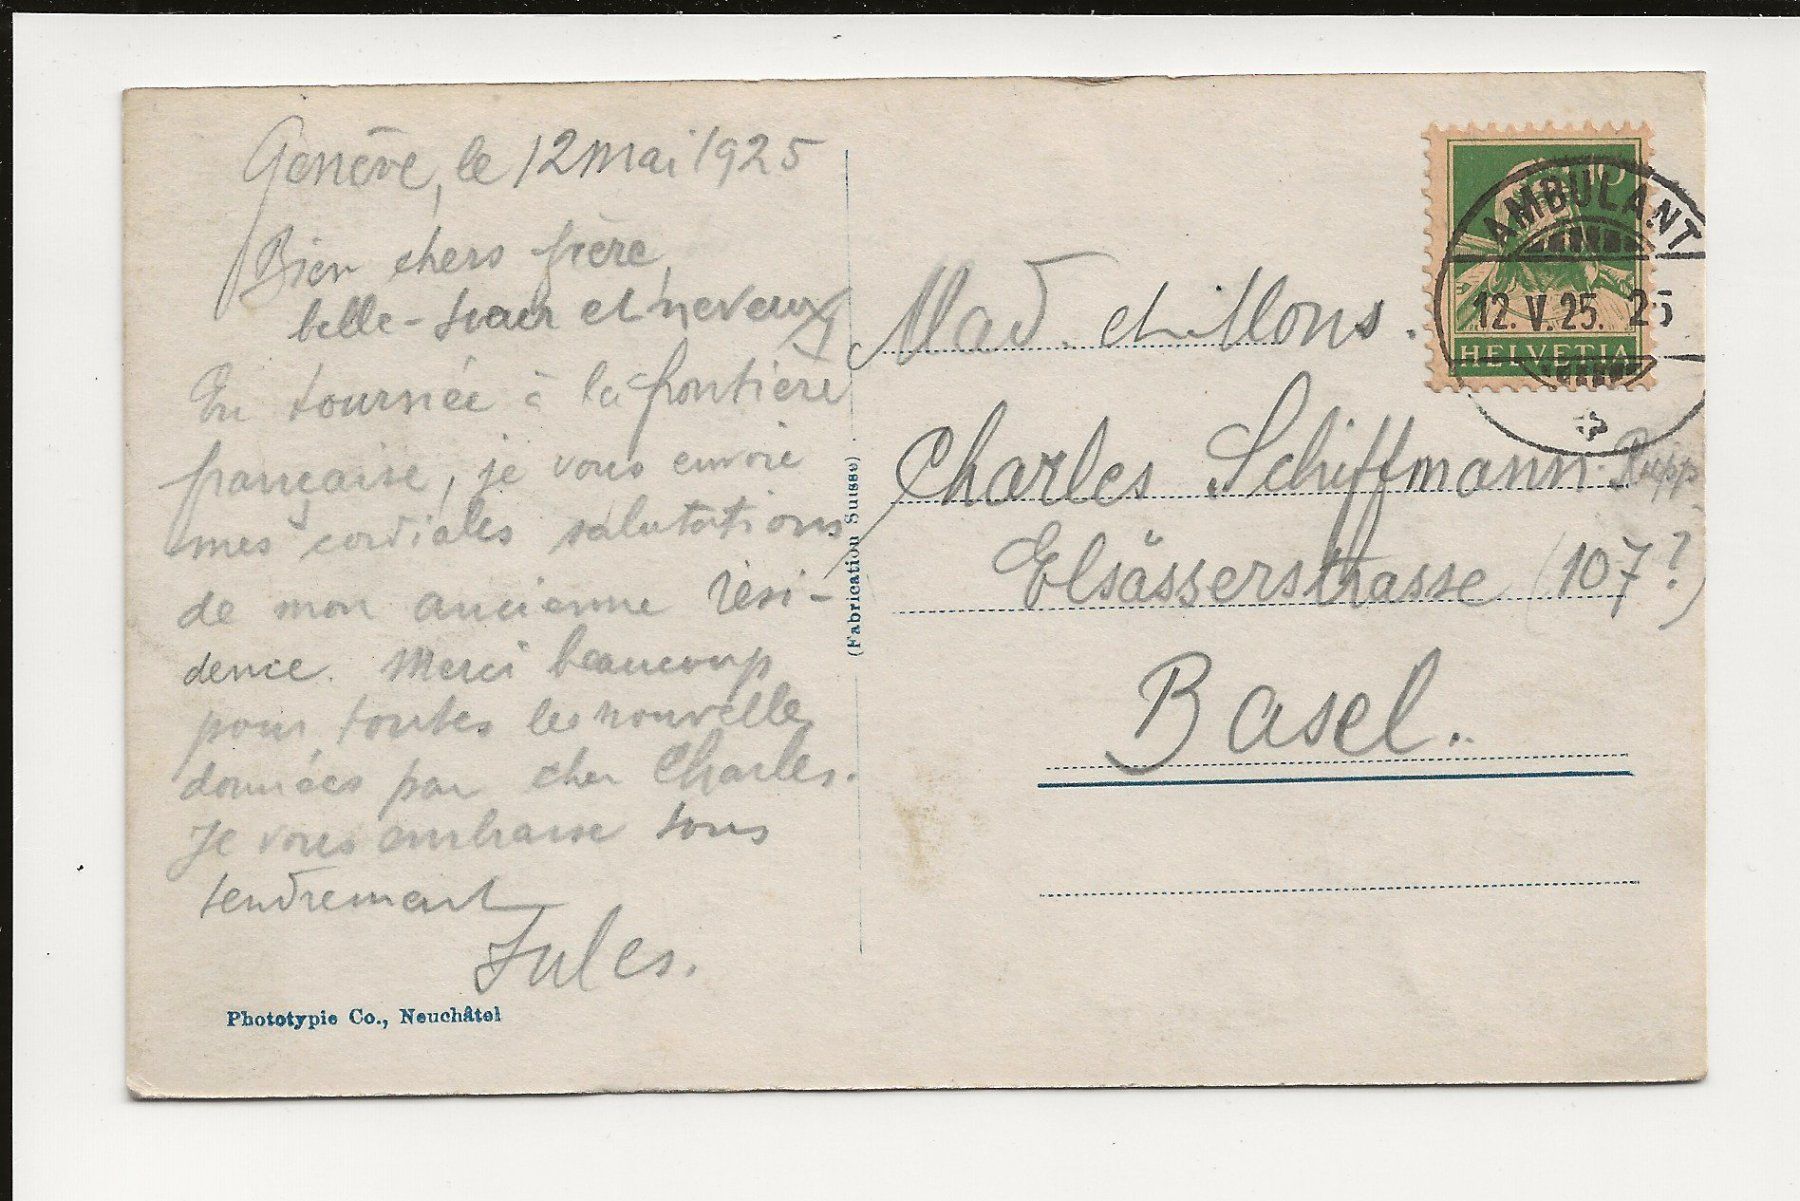 Genève, le 12 mai 1925
Bien chers frère,
belle-sœur et neveux,
En tournée à la frontière
française, je vous envoie
mes cordiales salutations
de mon ancienne rési-
dence. Merci beaucoup
pour toutes les nouvelles
données par cher Charles.
Je vous embrasse tous
tendrement
Jules.
Phototypie Co., Neuchâtel
(Fabrication Suisse)
AMBULANT
12. V. 25.
HELVETIA
Mad. et Mons.
Charles Schiffmann-Rupp
Elsässerstrasse (107?)
Basel.